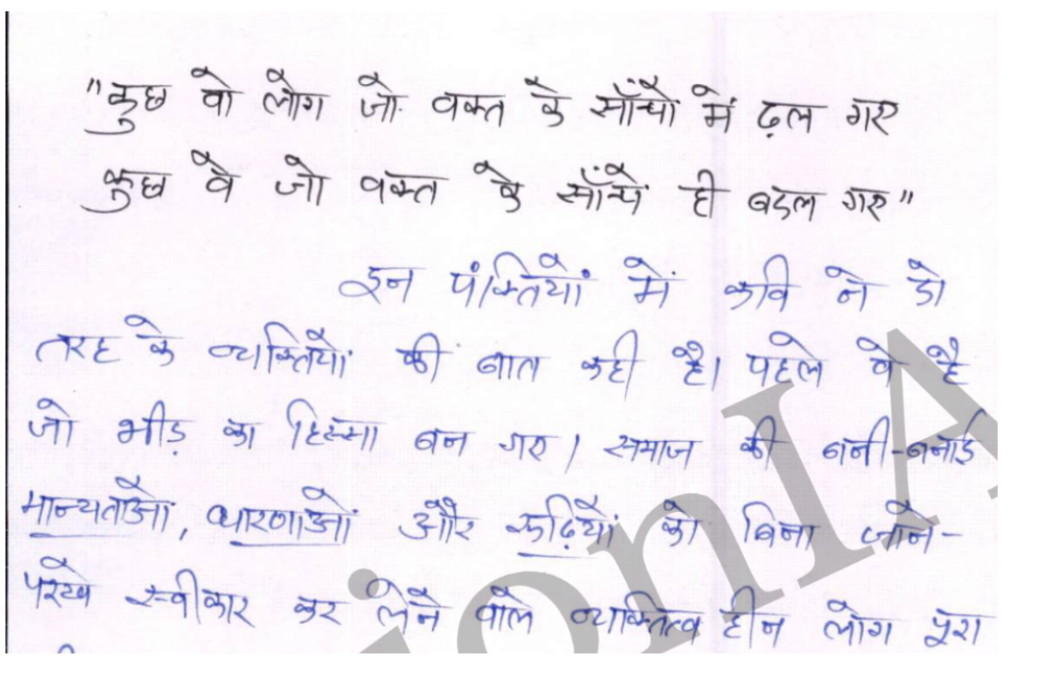 "कुछ वो लोग जो वक्त के साँचों में ढ़ल गए
कुछ वे जो वक्त के साँचे ही बदल गए"
इन पंक्तियों में कवि ने दो
तरह के व्यक्तियों की बात कही है। पहले वे है
जो भीड़ का हिस्सा बन गए। समाज की बनी-बनाई
मान्यताओं, धारणाओं और रूढ़ियों को बिना जाने-
परखे स्वीकार कर लेने वाले व्यक्तित्व हीन लोग पूरा
ionIA